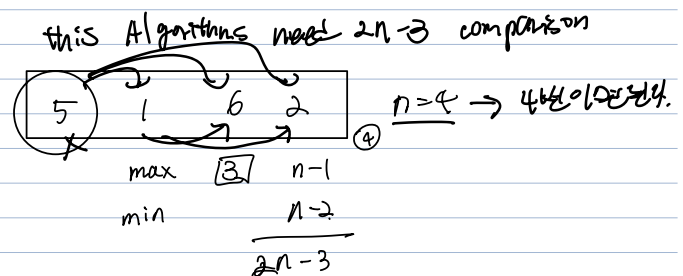 this Algorithms need 2n-3 comparison
5 1 6 2 n=4 → 4번이면된다.
④
max 3 n-1
min n-2
2n-3